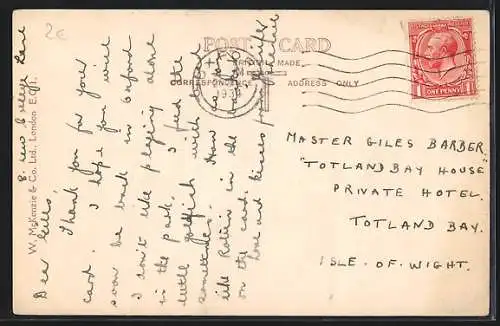 2€
POST CARD
BRITISH MADE.
CORRESPONDENCE
ADDRESS ONLY
ONE PENNY
W. McKenzie & Co. Ltd., London E.C.1.
8. New College Lane
Dear Giles.
Thank you for your
card. I hope you will
soon be back in Oxford
I don't like playing alone
in the park. I feed the
little goldfish with bread
sometimes. How is
like Rollers in the
on the card.
love and kisses from
MASTER GILES BARBER
"TOTLAND BAY HOUSE"
PRIVATE HOTEL.
TOTLAND BAY.
ISLE OF WIGHT.